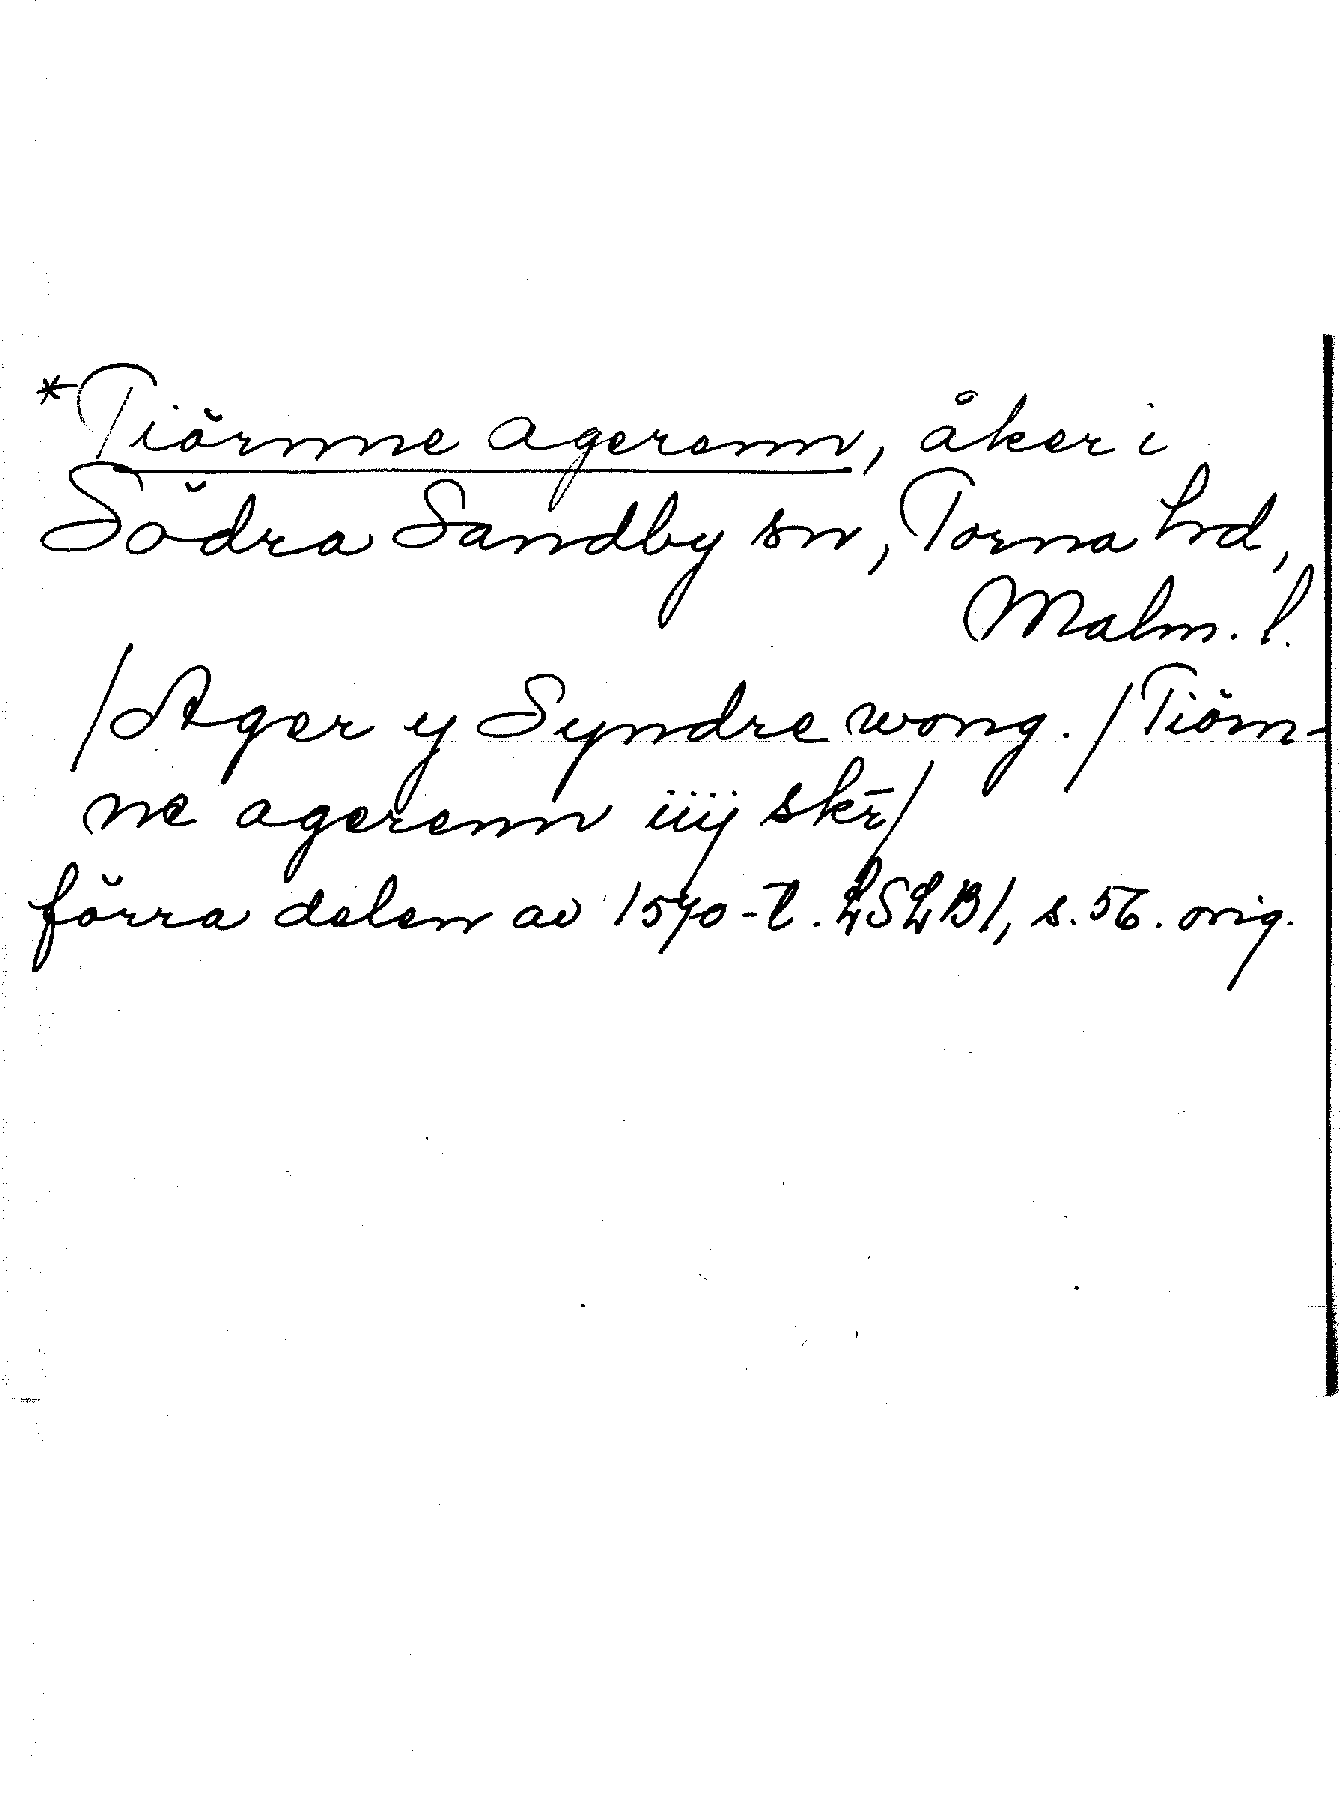 *Tiörnne agerenn, åker i
Södra Sandby sn, Torna hrd,
Malm. l.
/Ager y Syndre wong. / Tiörn-
ne agerenn iiij skr̄/
förra delen av 1570-t. LSLB1, s. 56. orig.